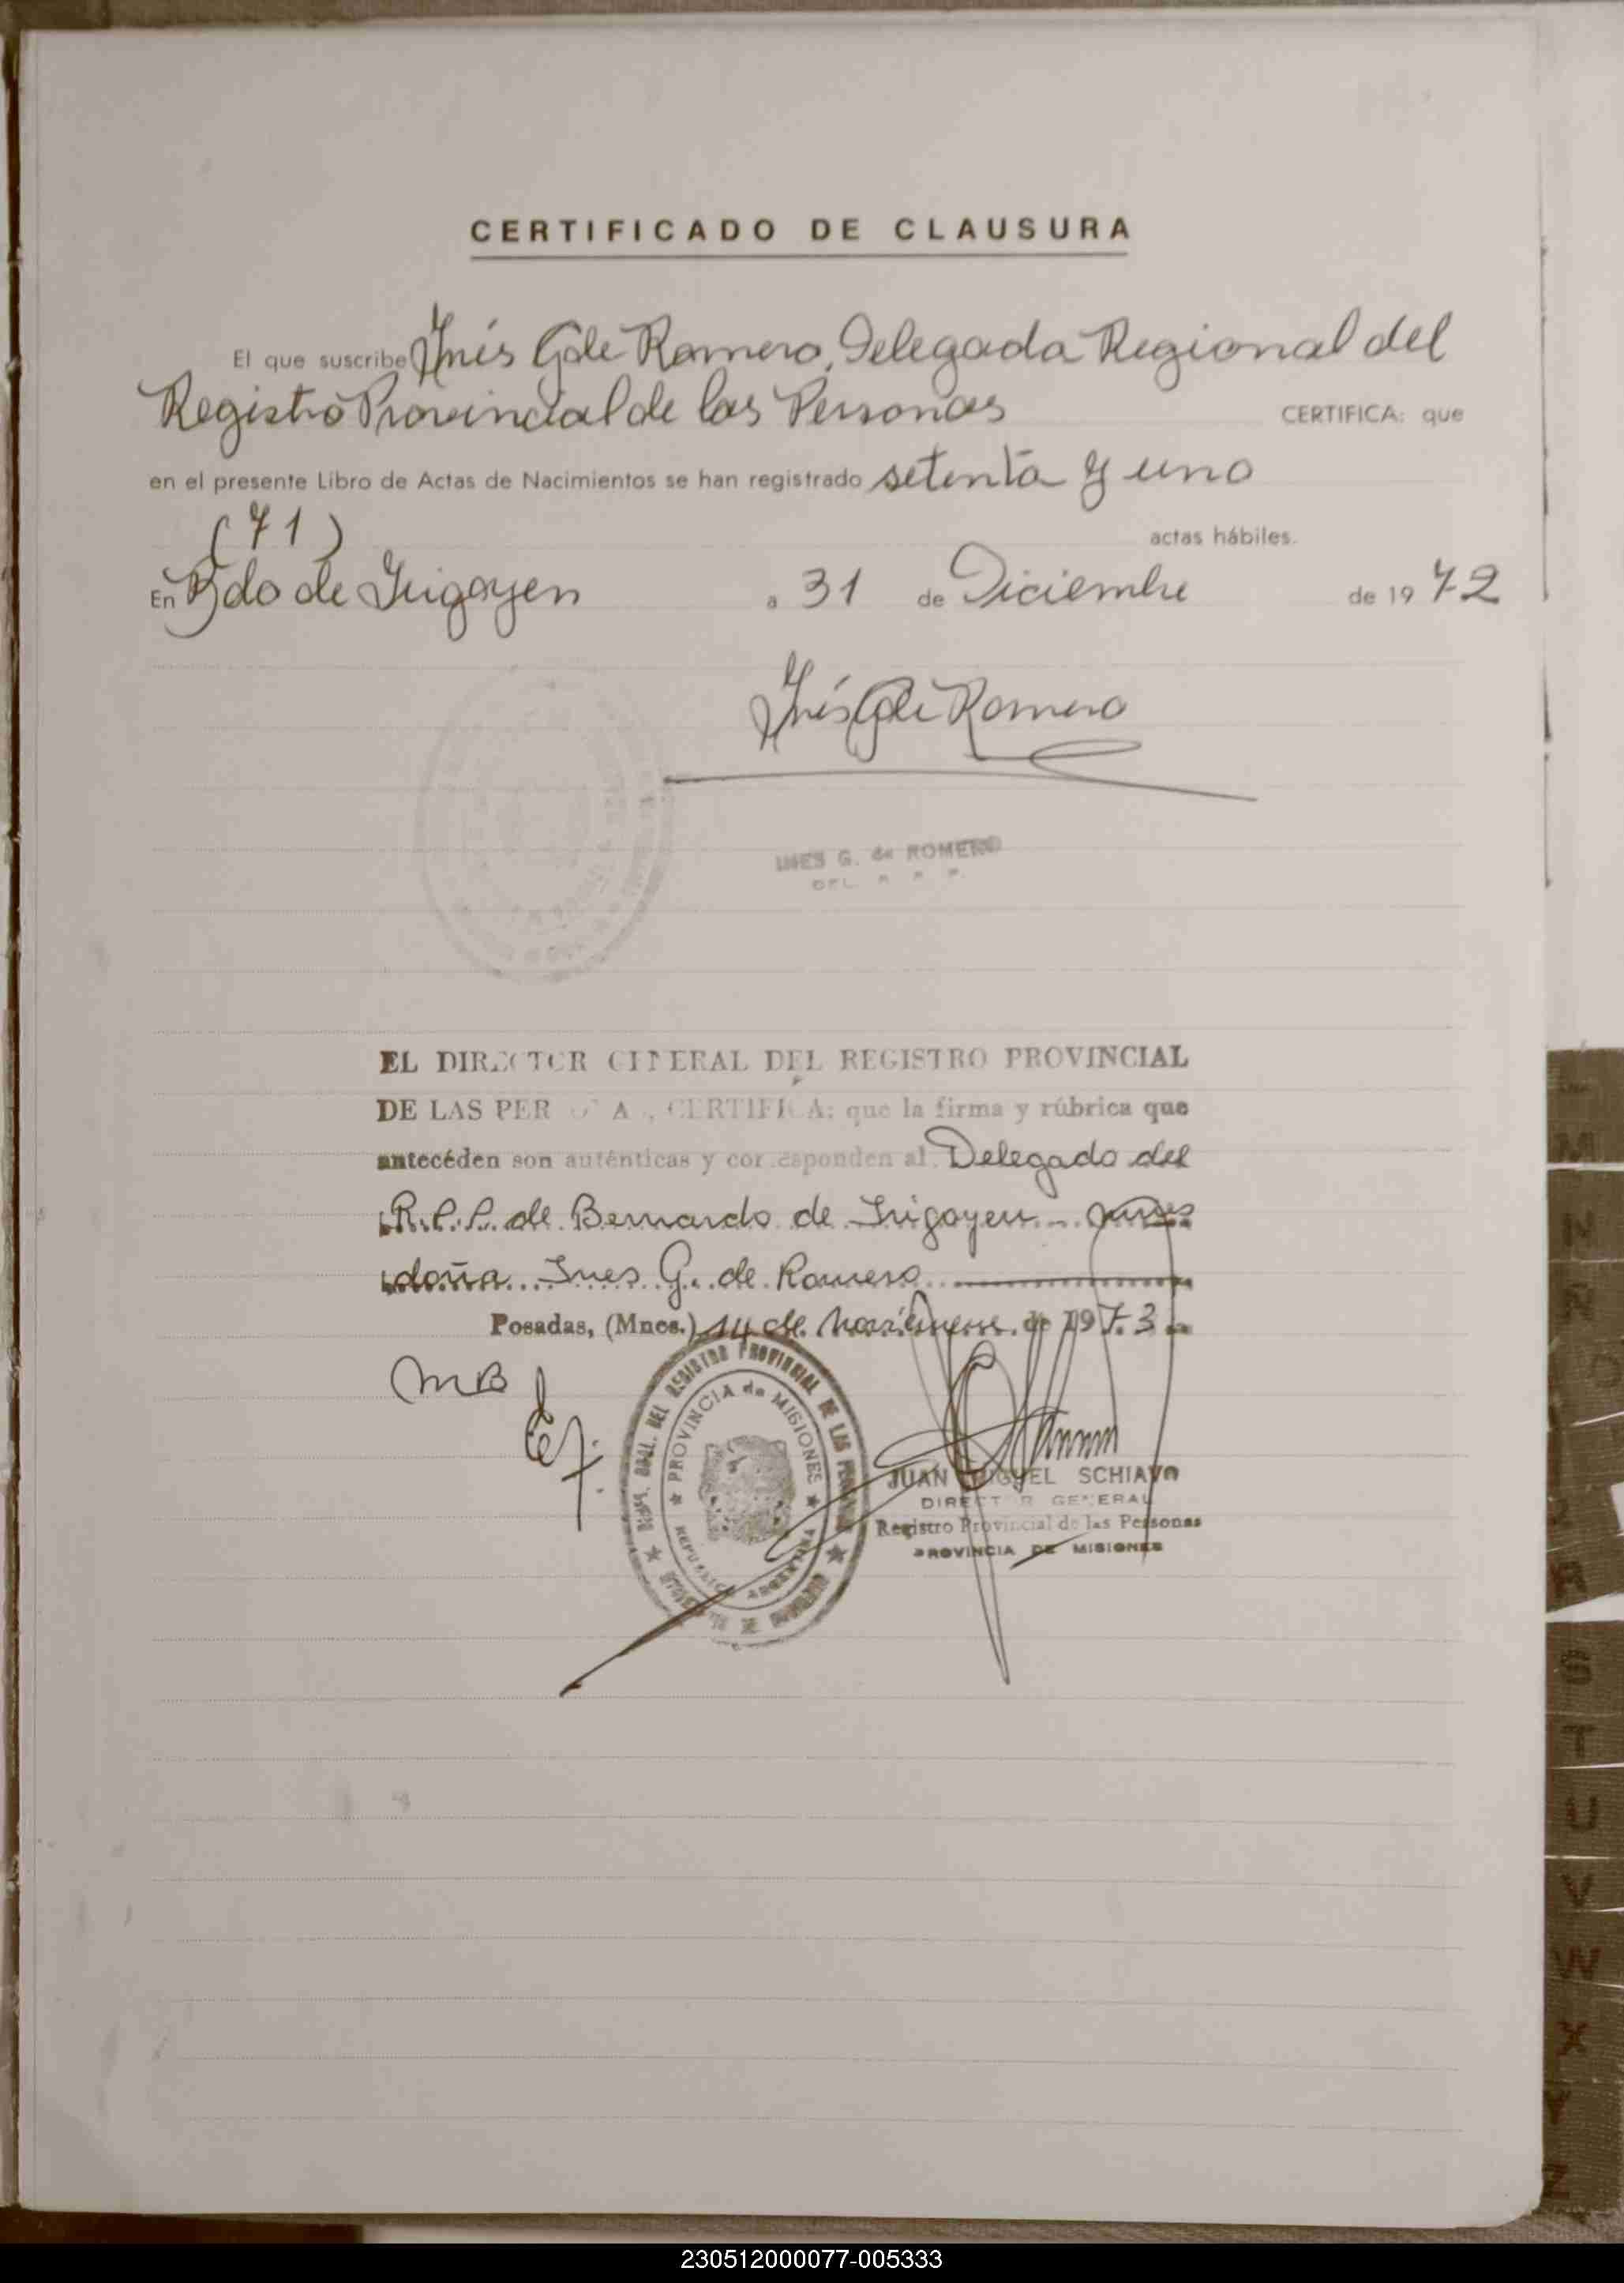 CERTIFICADO DE CLAUSURA
El que suscribe Inés G de Romero, Delegada Regional del
Registro Provincial de las Personas CERTIFICA: que
en el presente Libro de Actas de Nacimientos se han registrado setenta y uno
(71) actas hábiles.
En Bdo de Irigoyen a 31 de Diciembre de 1972
Inés G de Romero
INES G. de ROMERO
DEL R P P.
EL DIRECTOR GENERAL DEL REGISTRO PROVINCIAL
DE LAS PERSONAS, CERTIFICA: que la firma y rúbrica que
antecéden son auténticas y corresponden al Delegado del
R.P.P. de Bernardo de Irigoyen
doña Ines G. de Romero
Posadas, (Mnes.) 14 de de 1973
MB
DEL REGISTRO PROVINCIAL DE LAS PERSONAS
PROVINCIA de MISIONES
REPUBLICA ARGENTINA
MINISTERIO DE GOBIERNO
JUAN MIGUEL SCHIAVO
DIRECTOR GENERAL
Registro Provincial de las Personas
PROVINCIA DE MISIONES
M
N
R
S
T
U
V
W
X
Y
Z
230512000077-005333